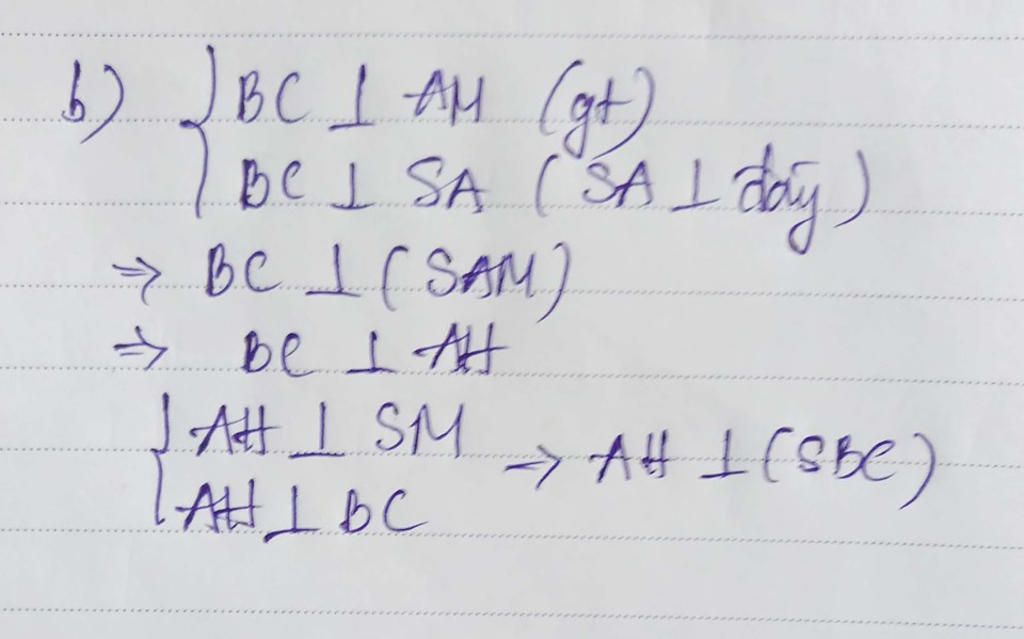 b) { BC ⊥ AM (gt)
BC ⊥ SA ( SA ⊥ đáy )
⇒ BC ⊥ ( SAM )
⇒ BC ⊥ AH
{ AH ⊥ SM
AH ⊥ BC ⇒ AH ⊥ (SBC)